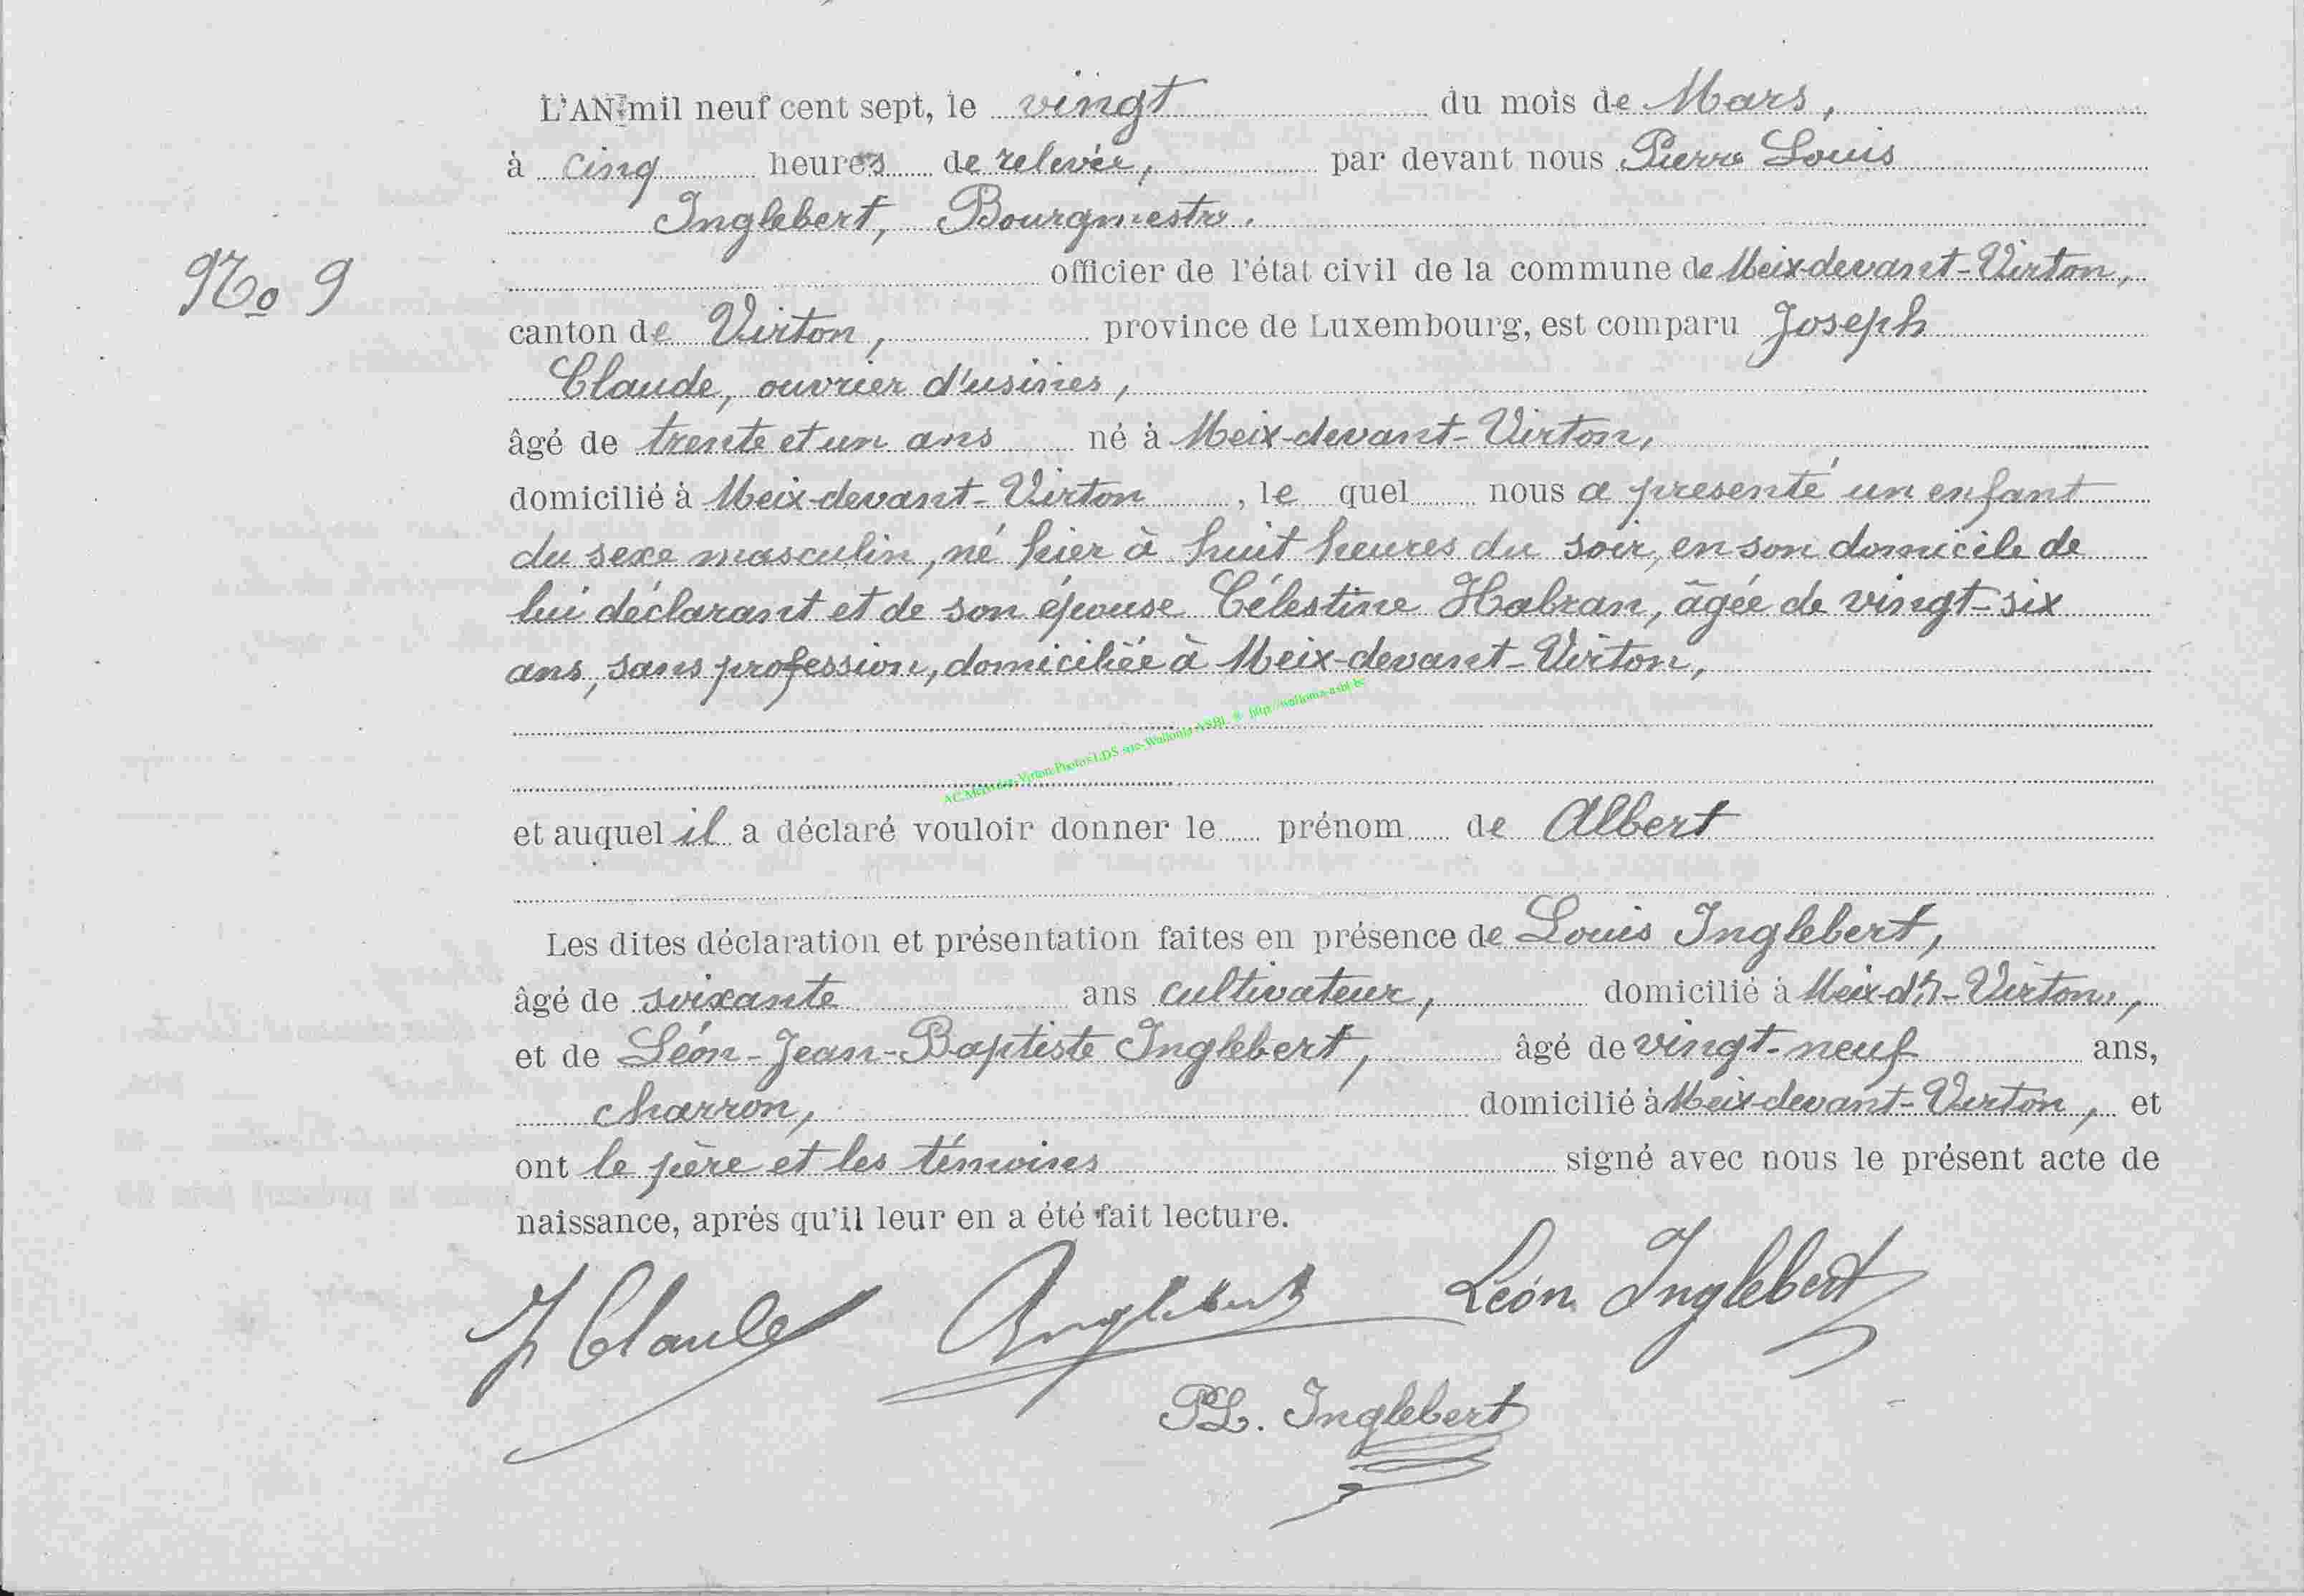 L'AN mil neuf cent sept, le vingt du mois de Mars,
à cinq heures de relevée, par devant nous Pierre Louis
Inglebert, Bourgmestre.
officier de l'état civil de la commune de Meix-devant-Virton,
No 9
canton de Virton, province de Luxembourg, est comparu Joseph
Claude, ouvrier d'usines,
âgé de trente et un ans né à Meix-devant-Virton,
domicilié à Meix-devant-Virton, le quel nous a présenté un enfant
du sexe masculin, né hier à huit heures du soir, en son domicile de
lui déclarant et de son épouse Célestine Habran, âgée de vingt-six
ans, sans profession, domiciliée à Meix-devant-Virton,
et auquel il a déclaré vouloir donner le prénom de Albert
Les dites déclaration et présentation faites en présence de Louis Inglebert,
âgé de soixante ans cultivateur, domicilié à Meix-dt-Virton,
et de Léon-Jean-Baptiste Inglebert, âgé de vingt-neuf ans,
charron, domicilié à Meix-devant-Virton, et
ont le père et les témoins signé avec nous le présent acte de
naissance, après qu'il leur en a été fait lecture.
J Claude Inglebert Léon Inglebert
PL. Inglebert